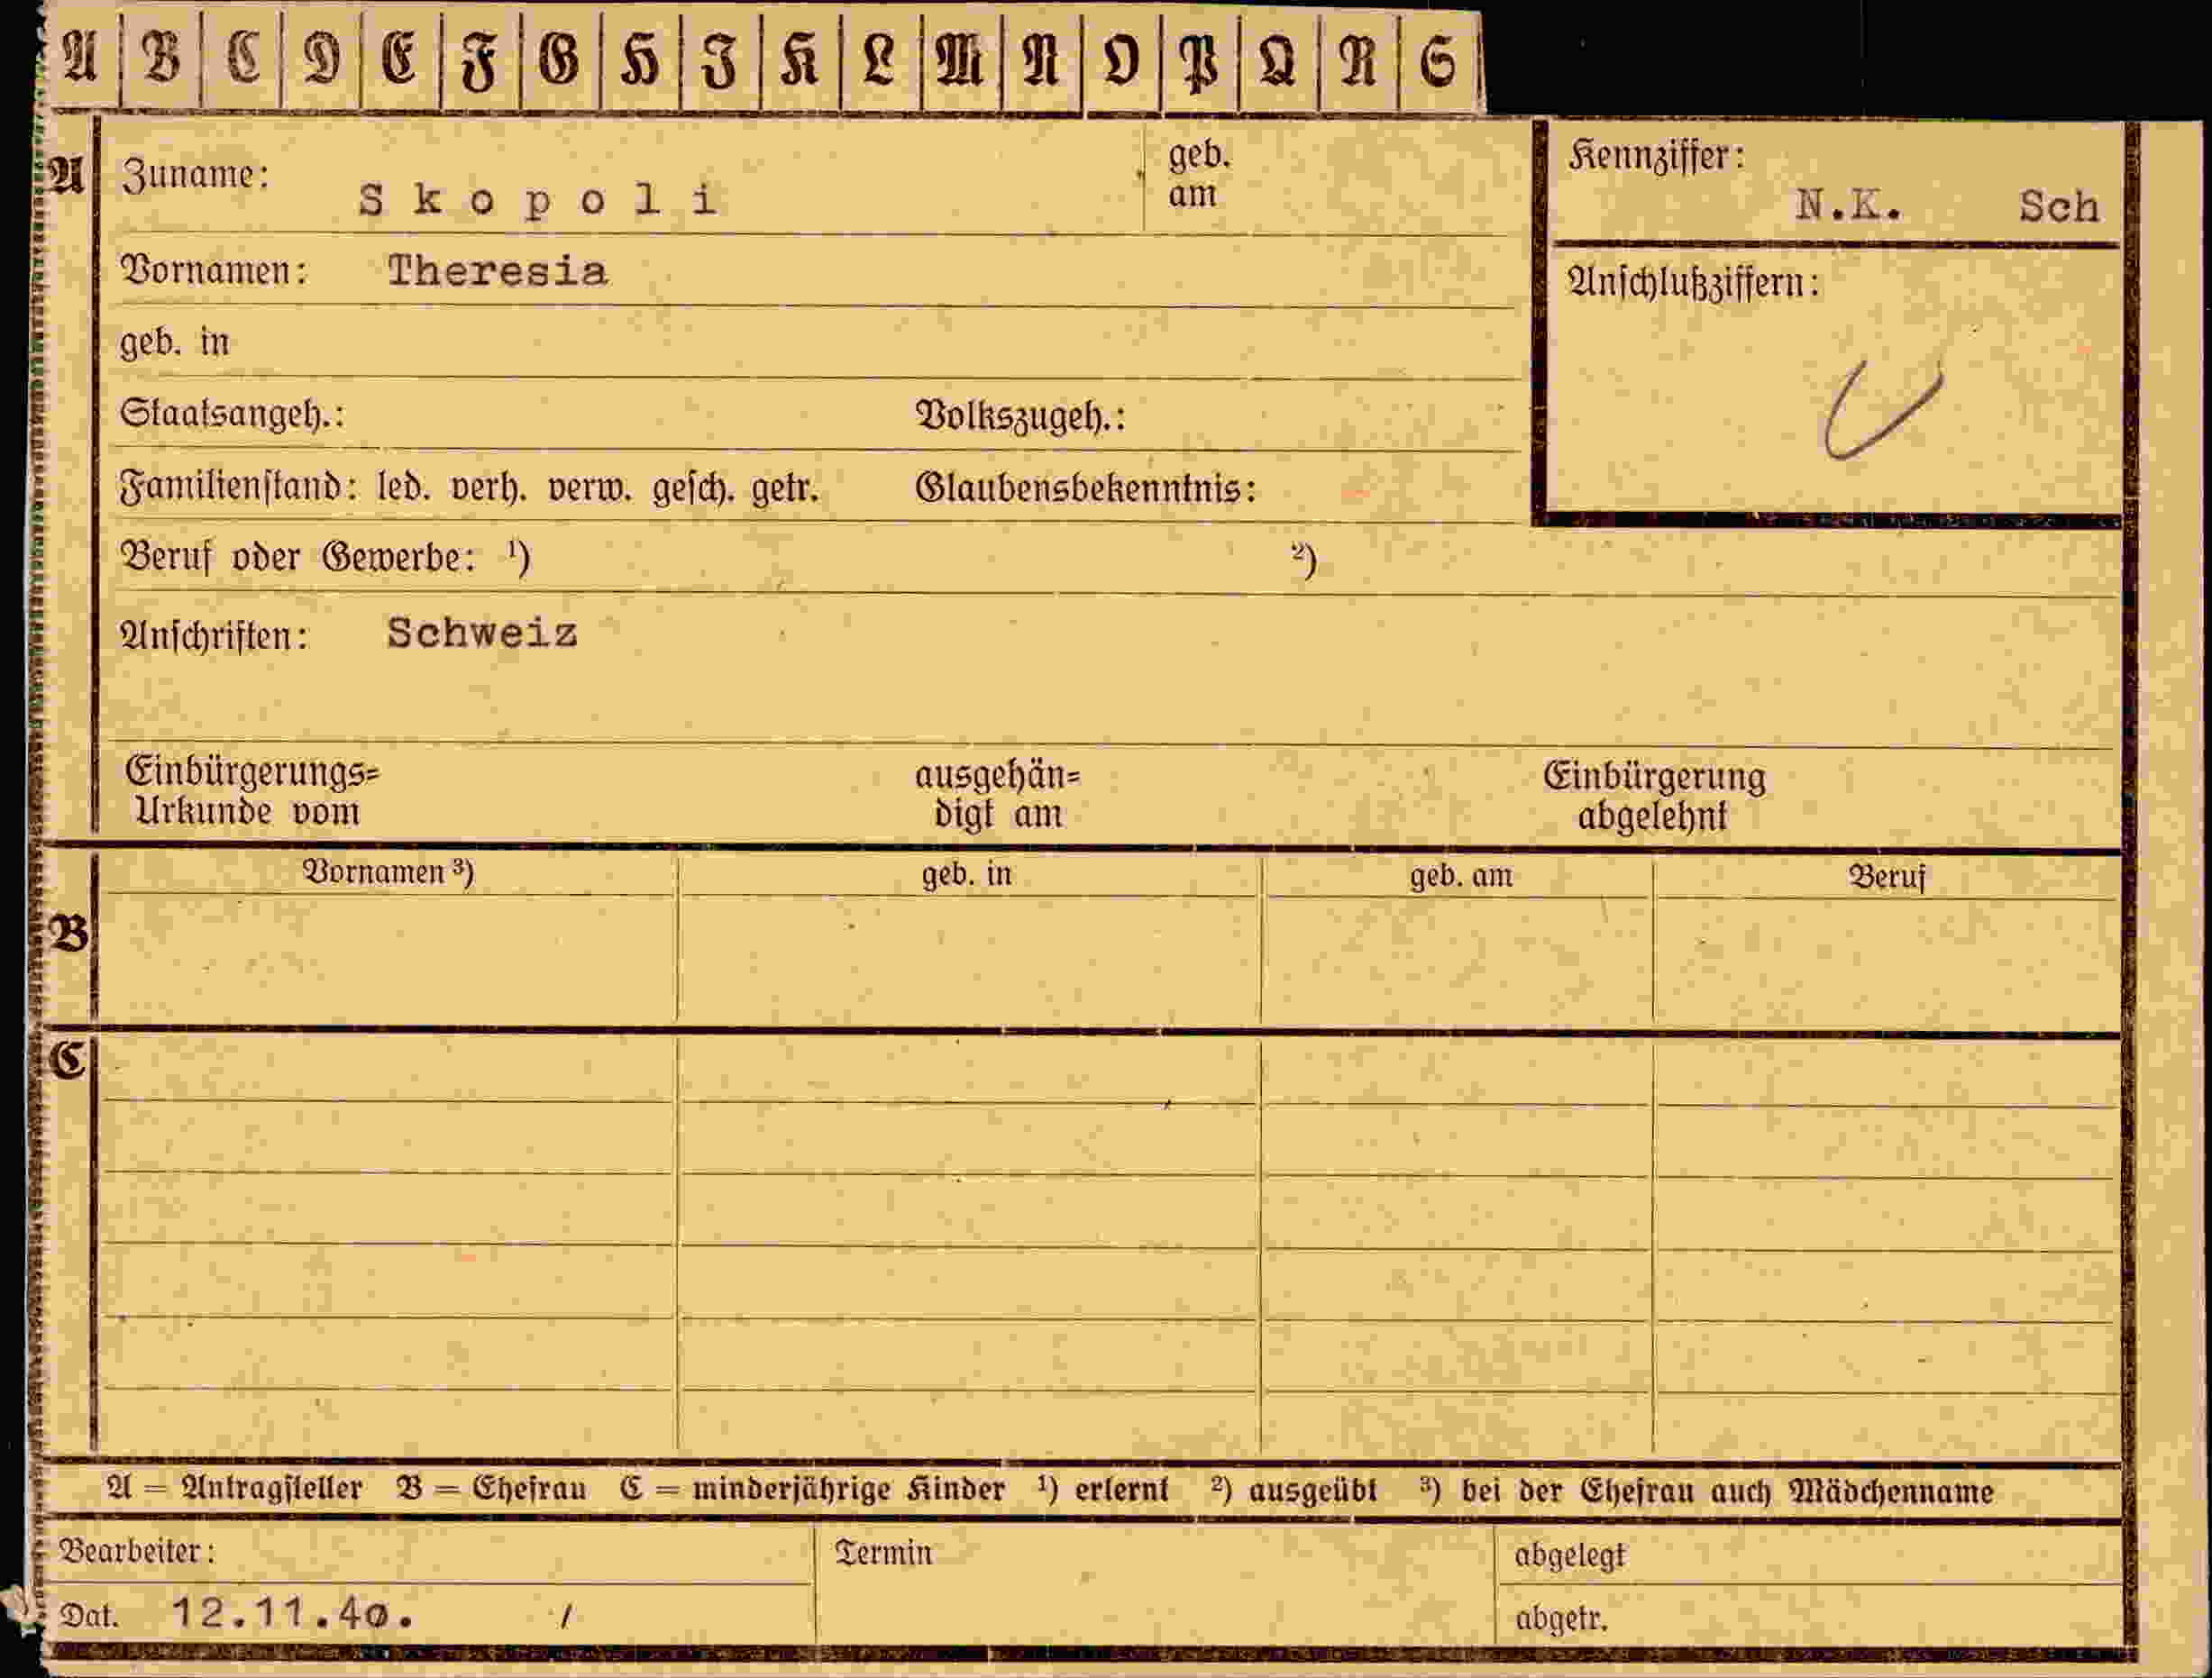 A B C D E F G H I K L M N O P Q R S
A Zuname: Skopoli geb. am
Kennziffer: N.K. Sch
Vornamen: Theresia
Anschlußziffern:
geb. in
Staatsangeh.: Volkszugeh.:
Familienstand: led. verh. verw. gesch. getr. Glaubensbekenntnis:
Beruf oder Gewerbe: ¹) ²)
Anschriften: Schweiz
Einbürgerungs= ausgehän= Einbürgerung
Urkunde vom digt am abgelehnt
Vornamen ³) geb. in geb. am Beruf
B
C
A = Antragsteller B = Ehefrau C = minderjährige Kinder ¹) erlernt ²) ausgeübt ³) bei der Ehefrau auch Mädchenname
Bearbeiter: Termin abgelegt
Dat. 12.11.40. / abgetr.